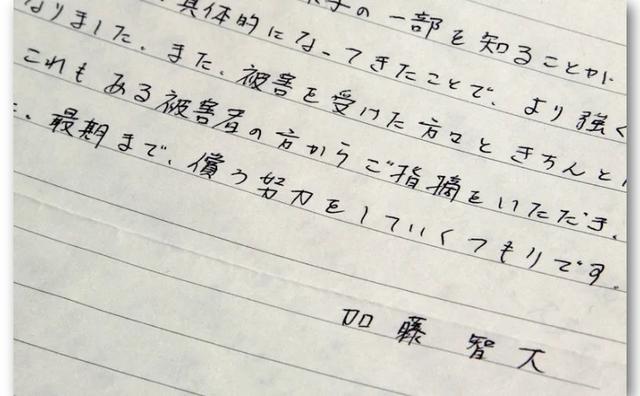 の一部を知ることが
具体的になってきたことで、より強く
なりました。また、被害を受けた方々ときちんと
これもある被害者の方からご指摘をいただき、
最期まで、償う努力をしていくつもりです。
加藤智大